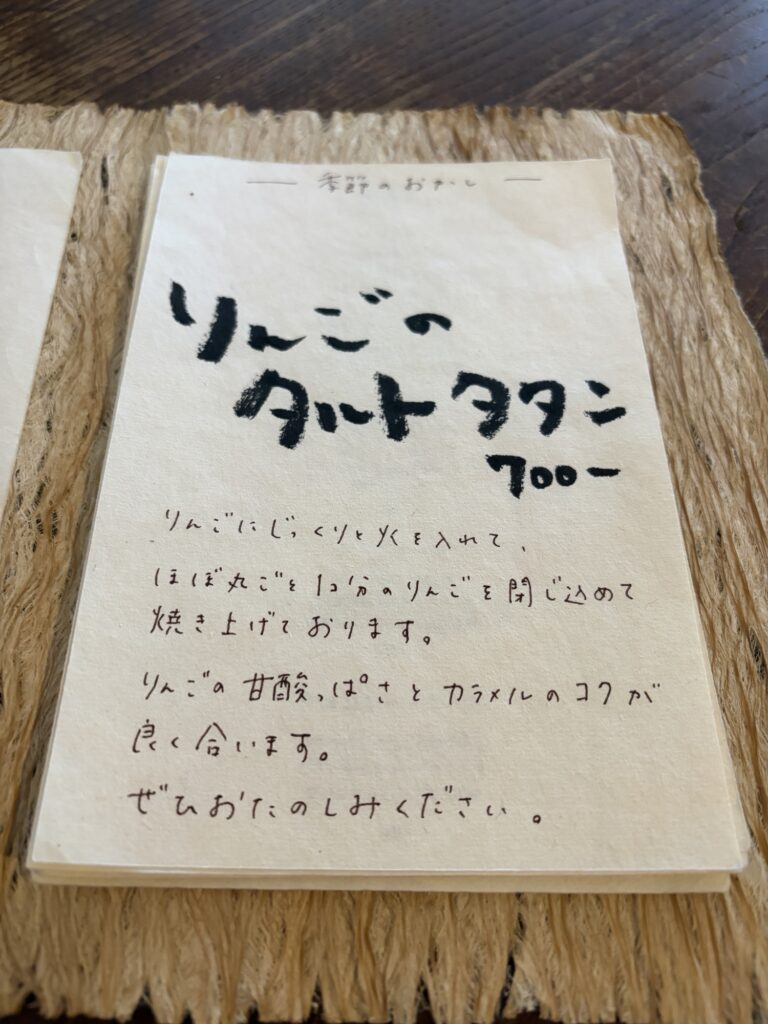 — 季節のおかし —
りんごの
タルトタタン
700ー
りんごにじっくりと火を入れて、
ほぼ丸ごと1コ分のりんごを閉じ込めて
焼き上げております。
りんごの甘酸っぱさとカラメルのコクが
良く合います。
ぜひおたのしみください。